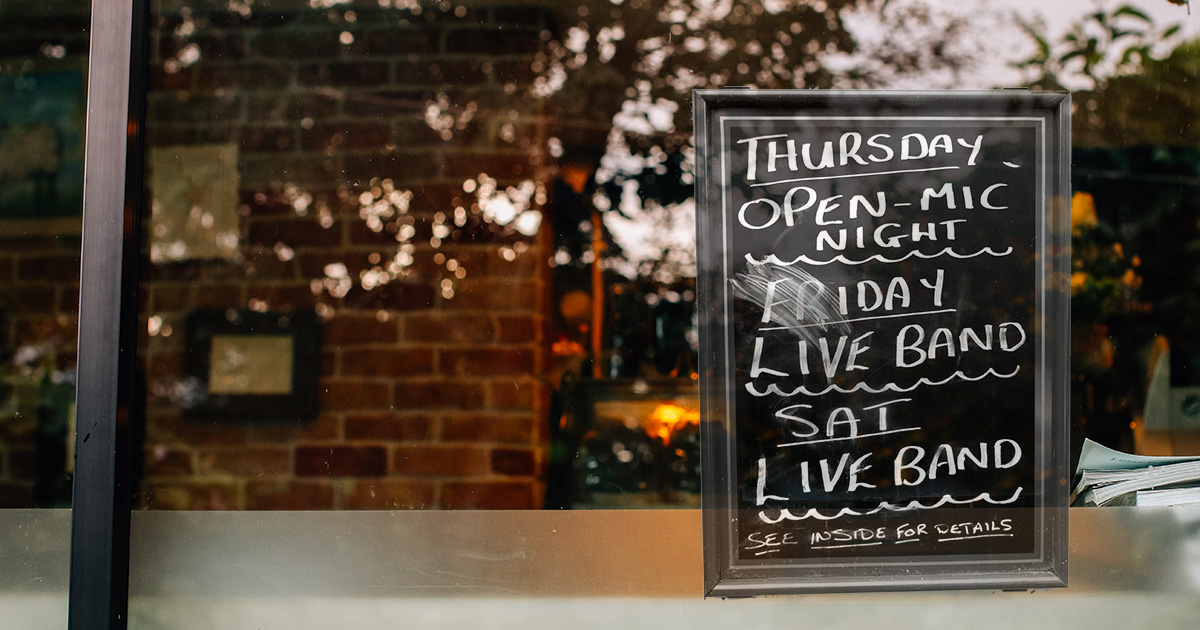 THURSDAY
OPEN-MIC
NIGHT
FRIDAY
LIVE BAND
SAT
LIVE BAND
SEE INSIDE FOR DETAILS